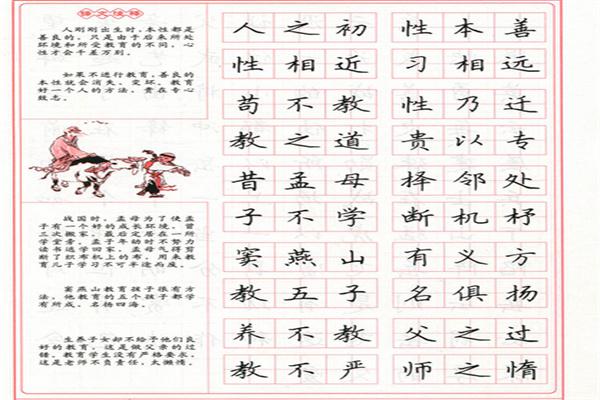 译文注释
人刚刚出生时，本性都是
善良的，只是由于后来所处
环境和所受教育的不同，心
性才会千差万别。
如果不进行教育，善良的
本性就会消失、变坏。教育
好一个人的方法，贵在专心
致志。
战国时，孟母为了使孟
子有一个好的成长环境，曾
三次搬家，最后定居在一所
学堂旁。孟子年幼时不努力
读书逃学回家，孟母气得剪
断了织布机上的布，用来教
育儿子学习不可半途而废。
窦燕山教育孩子很有方
法，他教育的五个孩子都学
有所成，名扬四海。
生养子女却不给予他们良
好的教育，这是做父亲的过
错。教育学生没有严格要求，
这是老师不负责任，太懒惰。
人之初 性本善
性相近 习相远
苟不教 性乃迁
教之道 贵以专
昔孟母 择邻处
子不学 断机杼
窦燕山 有义方
教五子 名俱扬
养不教 父之过
教不严 师之惰